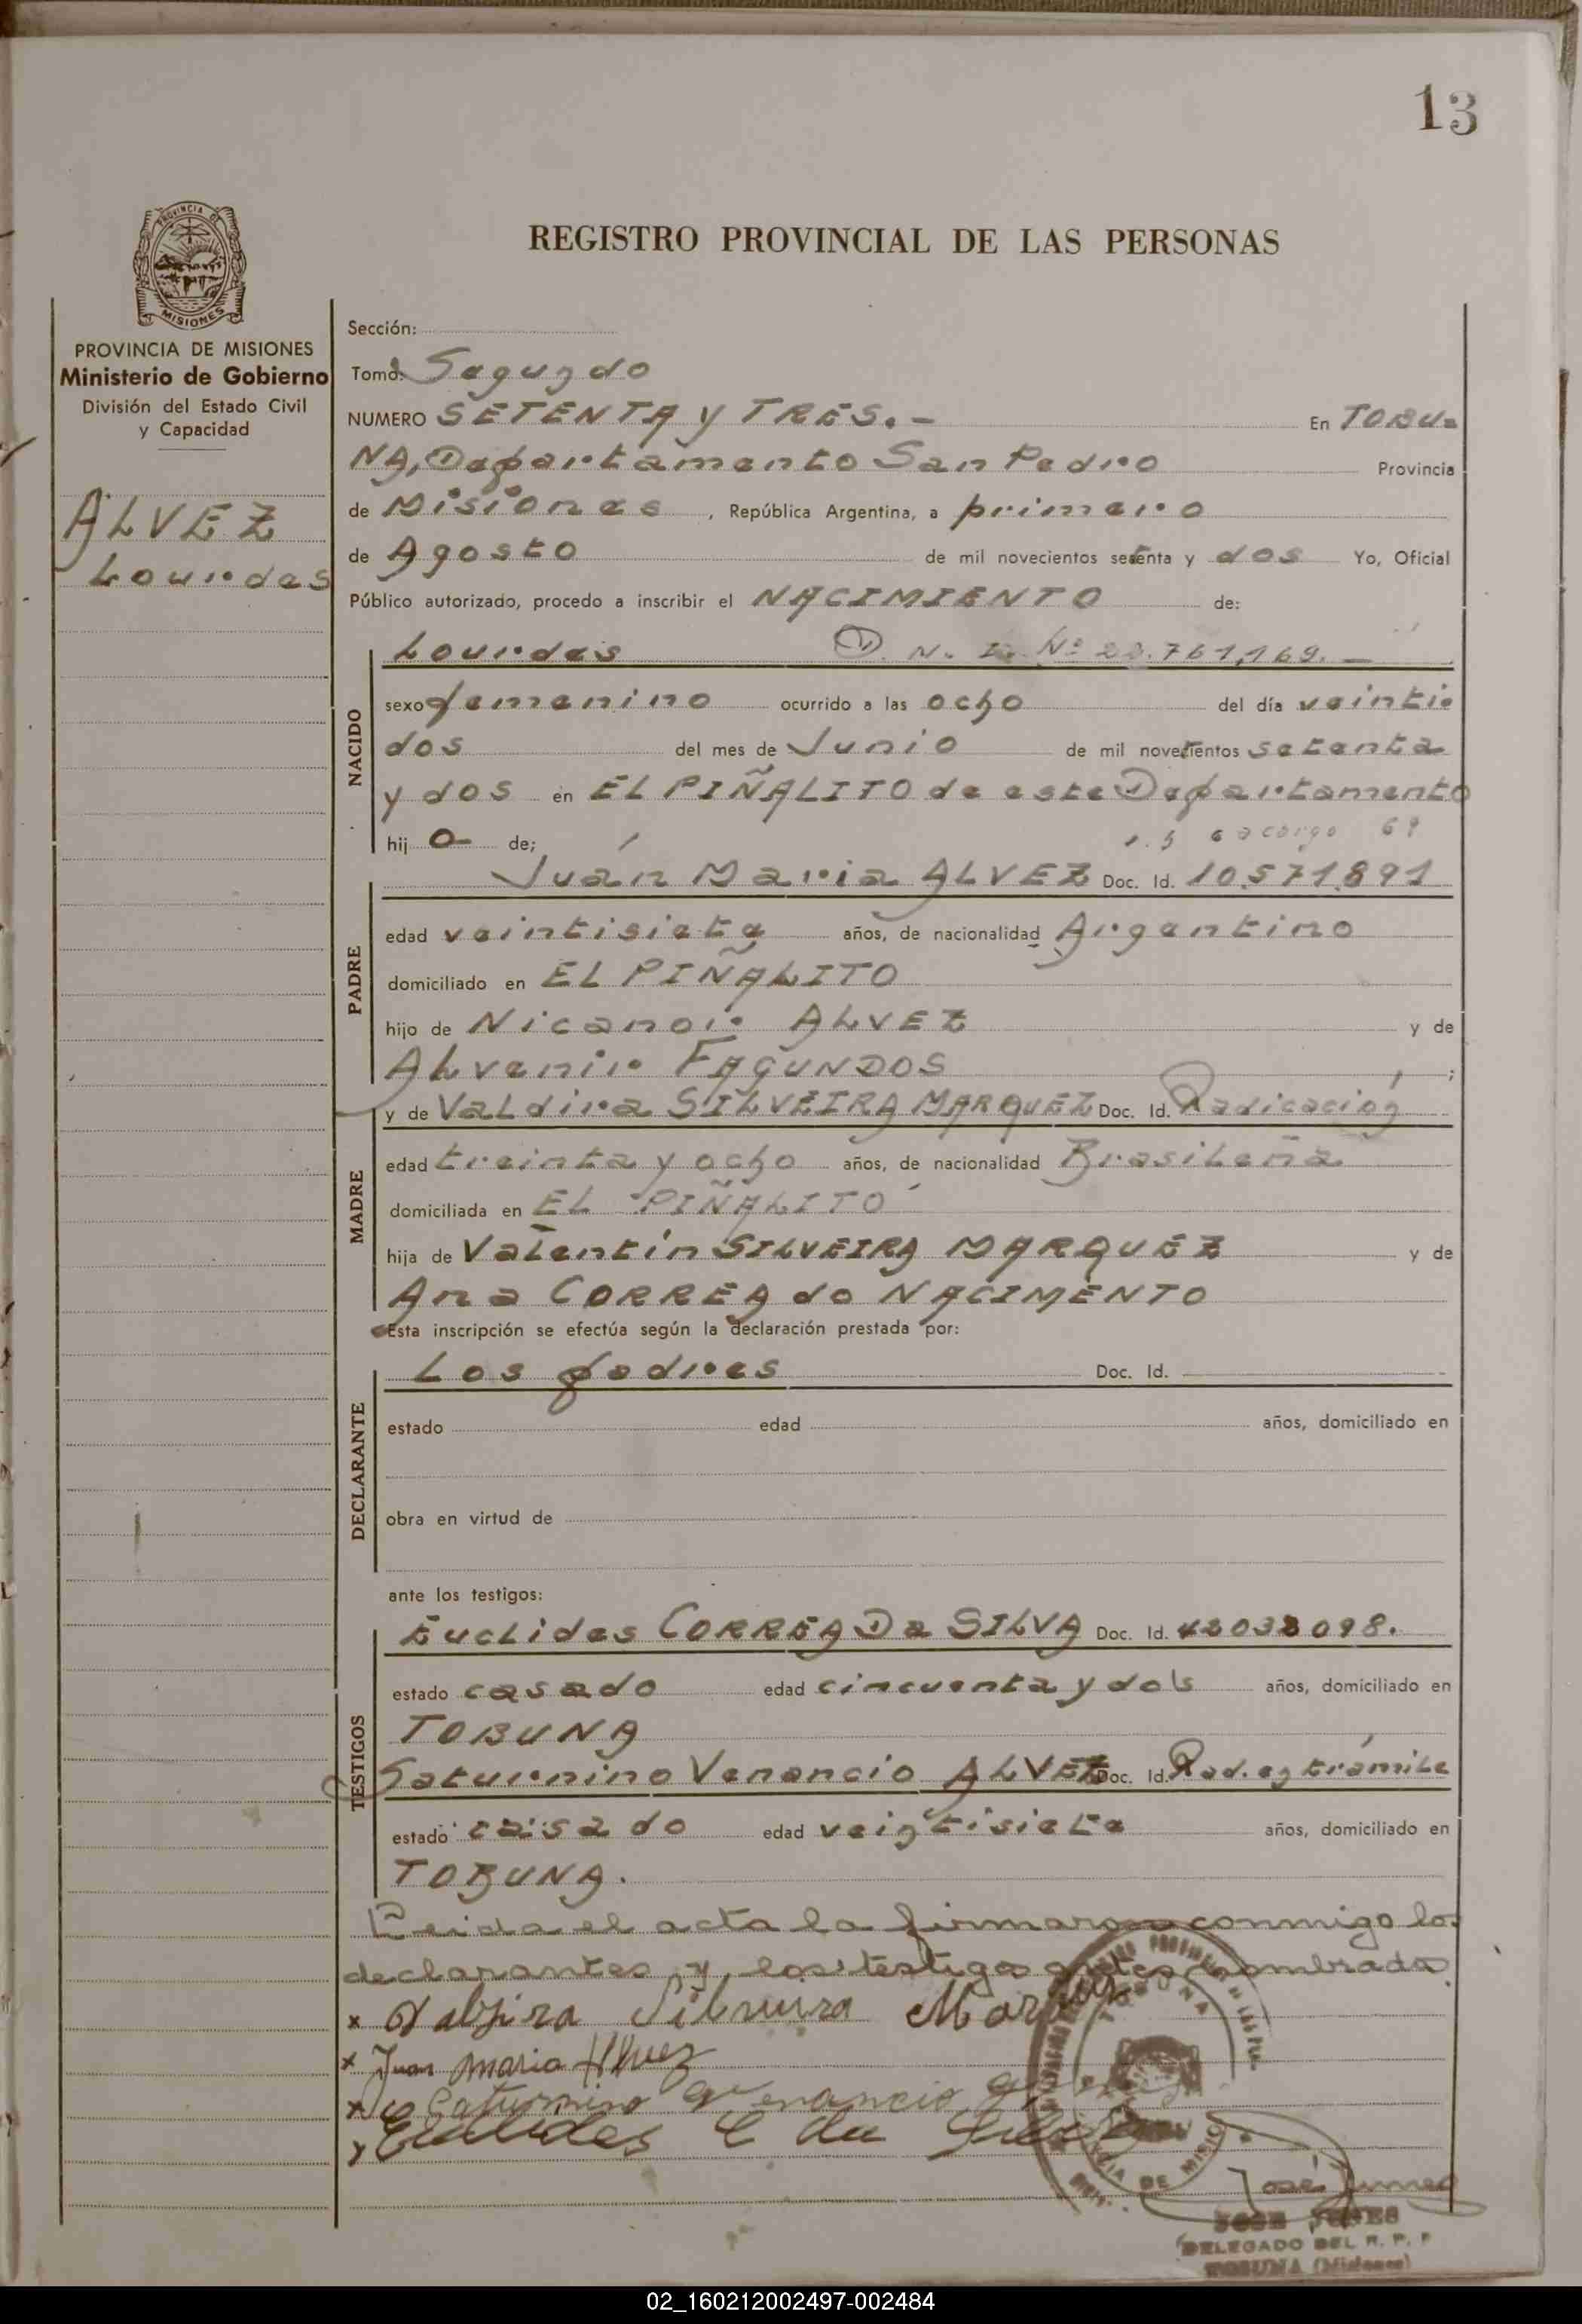 13
PROVINCIA DE
MISIONES
REGISTRO PROVINCIAL DE LAS PERSONAS
PROVINCIA DE MISIONES
Ministerio de Gobierno
División del Estado Civil
y Capacidad
ALVEZ
Lourdes
Sección:
Tomo: Segundo
NUMERO SETENTA Y TRES.- En TOBU=
NA, Departamento San Pedro Provincia
de Misiones, República Argentina, a primero
de Agosto de mil novecientos setenta y dos Yo, Oficial
Público autorizado, procedo a inscribir el NACIMIENTO de:
NACIDO
Lourdes D. N. I. Nº 22.761,169.-
sexo femenino ocurrido a las ocho del día veinti=
dos del mes de Junio de mil novecientos setenta
y dos en EL PIÑALITO de este Departamento
hija de;
PADRE
Juán Maria ALVEZ Doc. Id. 10.571.891
edad veintisiete años, de nacionalidad Argentino
domiciliado en EL PIÑALITO
hijo de Nicanor ALVEZ y de
ALvenir FAGUNDOS ;
MADRE
y de VaLdira SILVEIRA MARQUEZ Doc. Id. Radicación
edad treinta y ocho años, de nacionalidad BrasiLeña
domiciliada en EL PIÑALITO
hija de Valentín SILVEIRA MARQUEZ y de
Ana CORREA do NACIMENTO
Esta inscripción se efectúa según la declaración prestada por:
DECLARANTE
Los padres Doc. Id.
estado edad años, domiciliado en
obra en virtud de
ante los testigos:
TESTIGOS
EucLides CORREA Da SILVA Doc. Id.
estado casado edad cincuenta y dos años, domiciliado en
TOBUNA
Saturnino Venancio ALVEZ Doc. Id. Rad. en trámite
estado casado edad veintisiete años, domiciliado en
TOBUNA.
Leida el acta la firmaron conmigo los
declarantes y los testigos antes nombrados
x Valzira Silveira
x Juan Maria Alvez
x Saturnino Venancio
x Euclides C da Silva
José Junes
JOSE JUNES
DELEGADO DEL R. P. P
TOBUNA (Misiones)
02_160212002497-002484